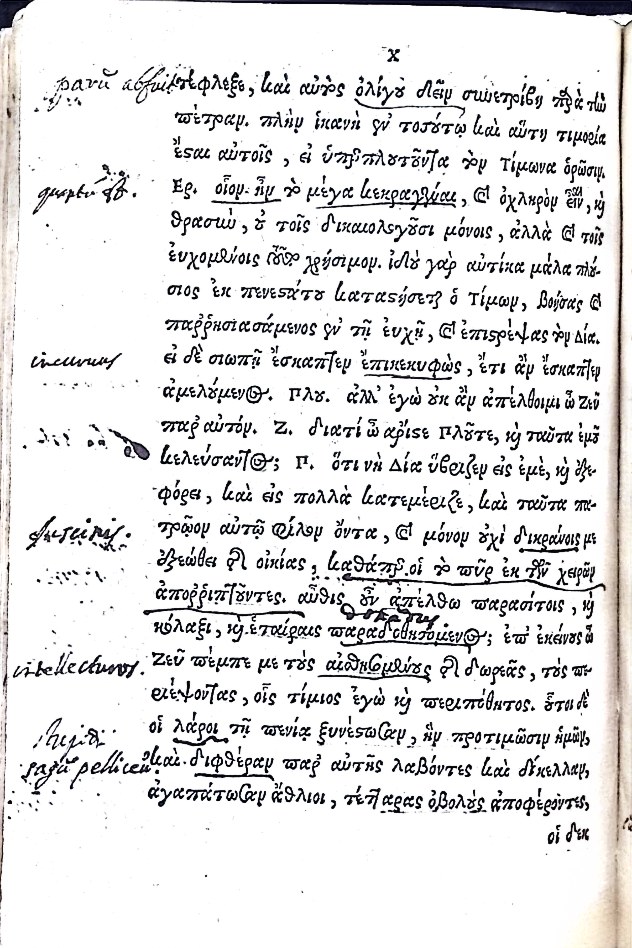 χ
parũ abfuit
τέφλεξε, καὶ αὐτὸς ὀλίγου δεῖν συνετρίβη παρὰ τὴν
πέτραν. πλὴν ἱκανὴ ἐν τοσούτῳ καὶ αὕτη τιμορία
ἔσαι αὐτοῖς, εἰ ὑπερπλουτοῦντα τὸν Τίμωνα ὁρῶσιν.
Ερ. οἷον ἦν τὸ μέγα κεκραγέναι, καὶ ὀχληρὸν εἶναι, καὶ
θρασὺν, οὐ τοῖς δικαιολογοῦσι μόνοις, ἀλλὰ καὶ τοῖς
εὐχομένοις τοῦτο χρήσιμον. ἰδοὺ γὰρ αὐτίκα μάλα πλού-
σιος ἐκ πενεστάτου καταστήσεται ὁ Τίμων, βοήσας καὶ
παῤῥησιασάμενος ἐν τῇ εὐχῇ, καὶ ἐπιστρέψας τὸν Δία.
incuruus
εἰ δὲ σιωπῇ ἔσκαπτεν ἐπικεκυφὼς, ἔτι ἂν ἔσκαπτεν
ἀμελούμενος. Πλου. ἀλλ' ἐγὼ οὐκ ἂν ἀπέλθοιμι ὦ Ζεῦ
παρ αὐτόν. Ζ. διατί ὦ ἄριστε Πλοῦτε, καὶ ταῦτα ἐμοῦ
κελεύσαντος; Π. ὅτι νὴ Δία ὕβριζεν εἰς ἐμὲ, καὶ ἐξε-
φόρει, καὶ εἰς πολλὰ κατεμέριζε, καὶ ταῦτα πα-
fuscinis.
τρῷον αὐτῷ φίλον ὄντα, καὶ μόνον οὐχὶ δικράνοις με
ἐξεώθει τῆς οἰκίας, καθάπερ οἱ τὸ πῦρ ἐκ τῶν χειρῶν
ἀποῤῥιπτοῦντες. αὖθις οὖν ἀπέλθω παρασίτοις, καὶ
κόλαξι, καὶ ἑταίραις παραδοθησόμενος; ἐπ' ἐκείνους ὦ
intellecturos.
Ζεῦ πέμπε με τοὺς αἰσθησομένους τῆς δωρεᾶς, τοὺς πε-
ριέψοντας, οἷς τίμιος ἐγὼ καὶ περιπόθητος. οὗτοι δὲ
οἱ λάροι τῇ πενίᾳ ξυνέστωσαν, ἣν προτιμῶσιν ἡμῶν,
sagũ pelliceũ.
καὶ διφθέραν παρ αὐτῆς λαβόντες καὶ δίκελλαν,
ἀγαπάτωσαν ἄθλιοι, τέτταρας ὀβολοὺς ἀποφέροντες,
οἱ δεκ